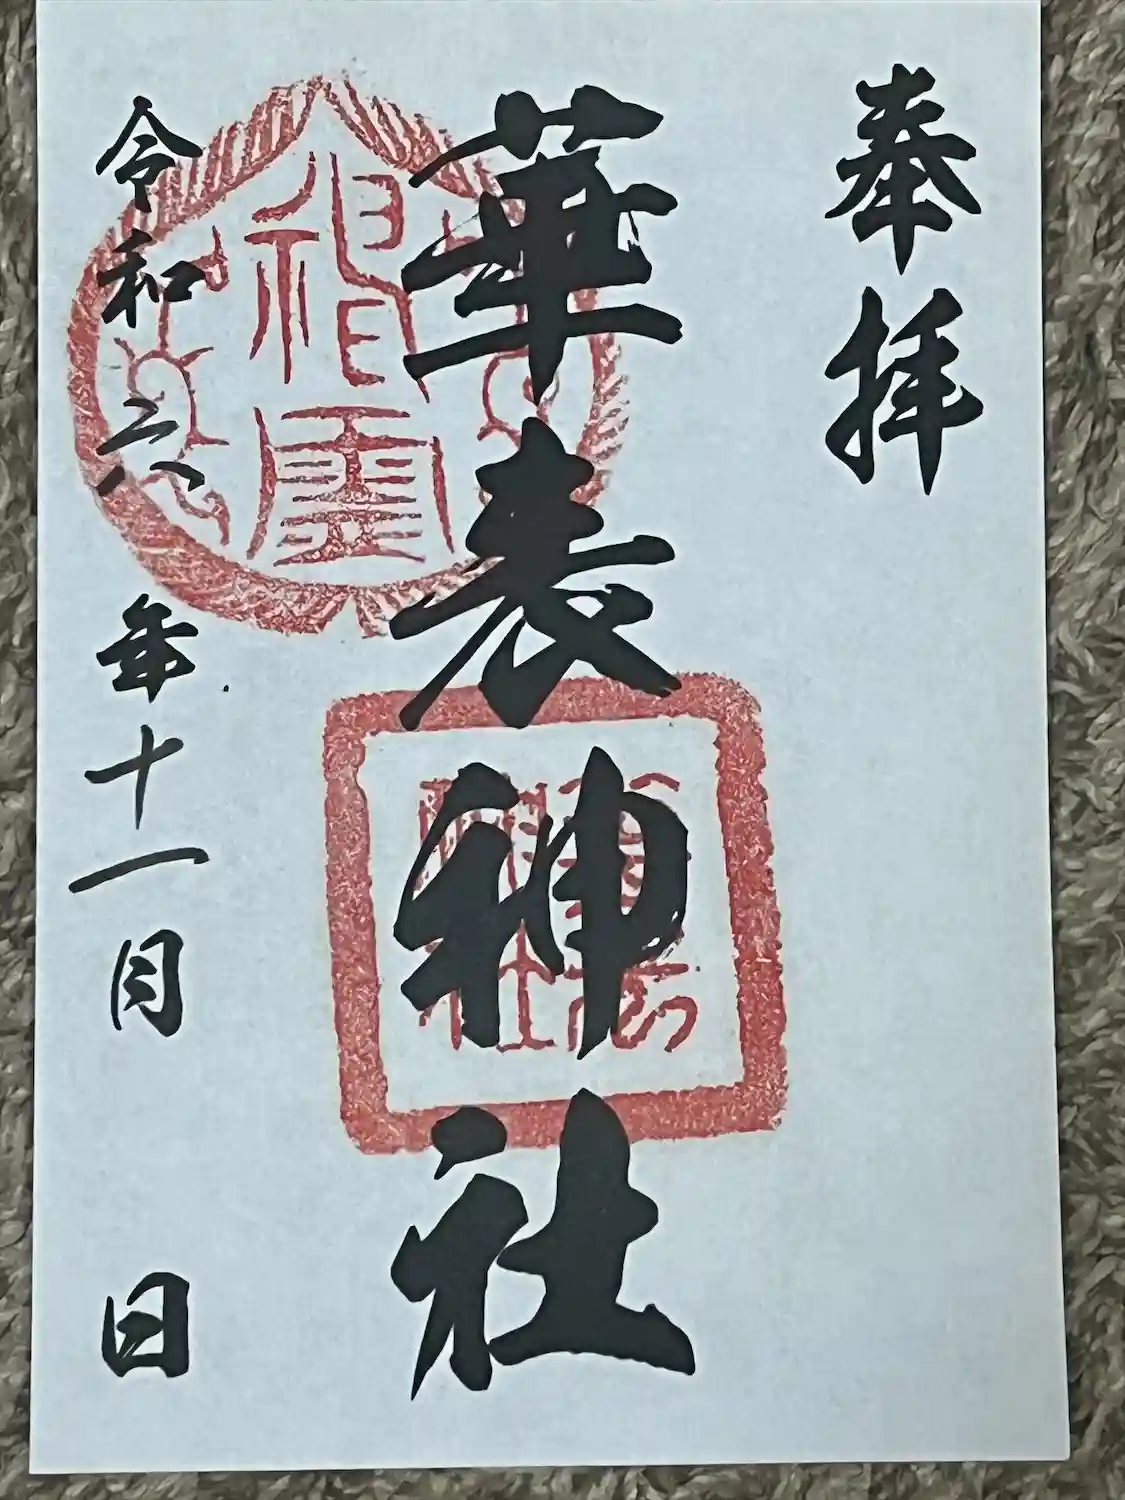 奉拝
華表神社
令和六年十一月　日